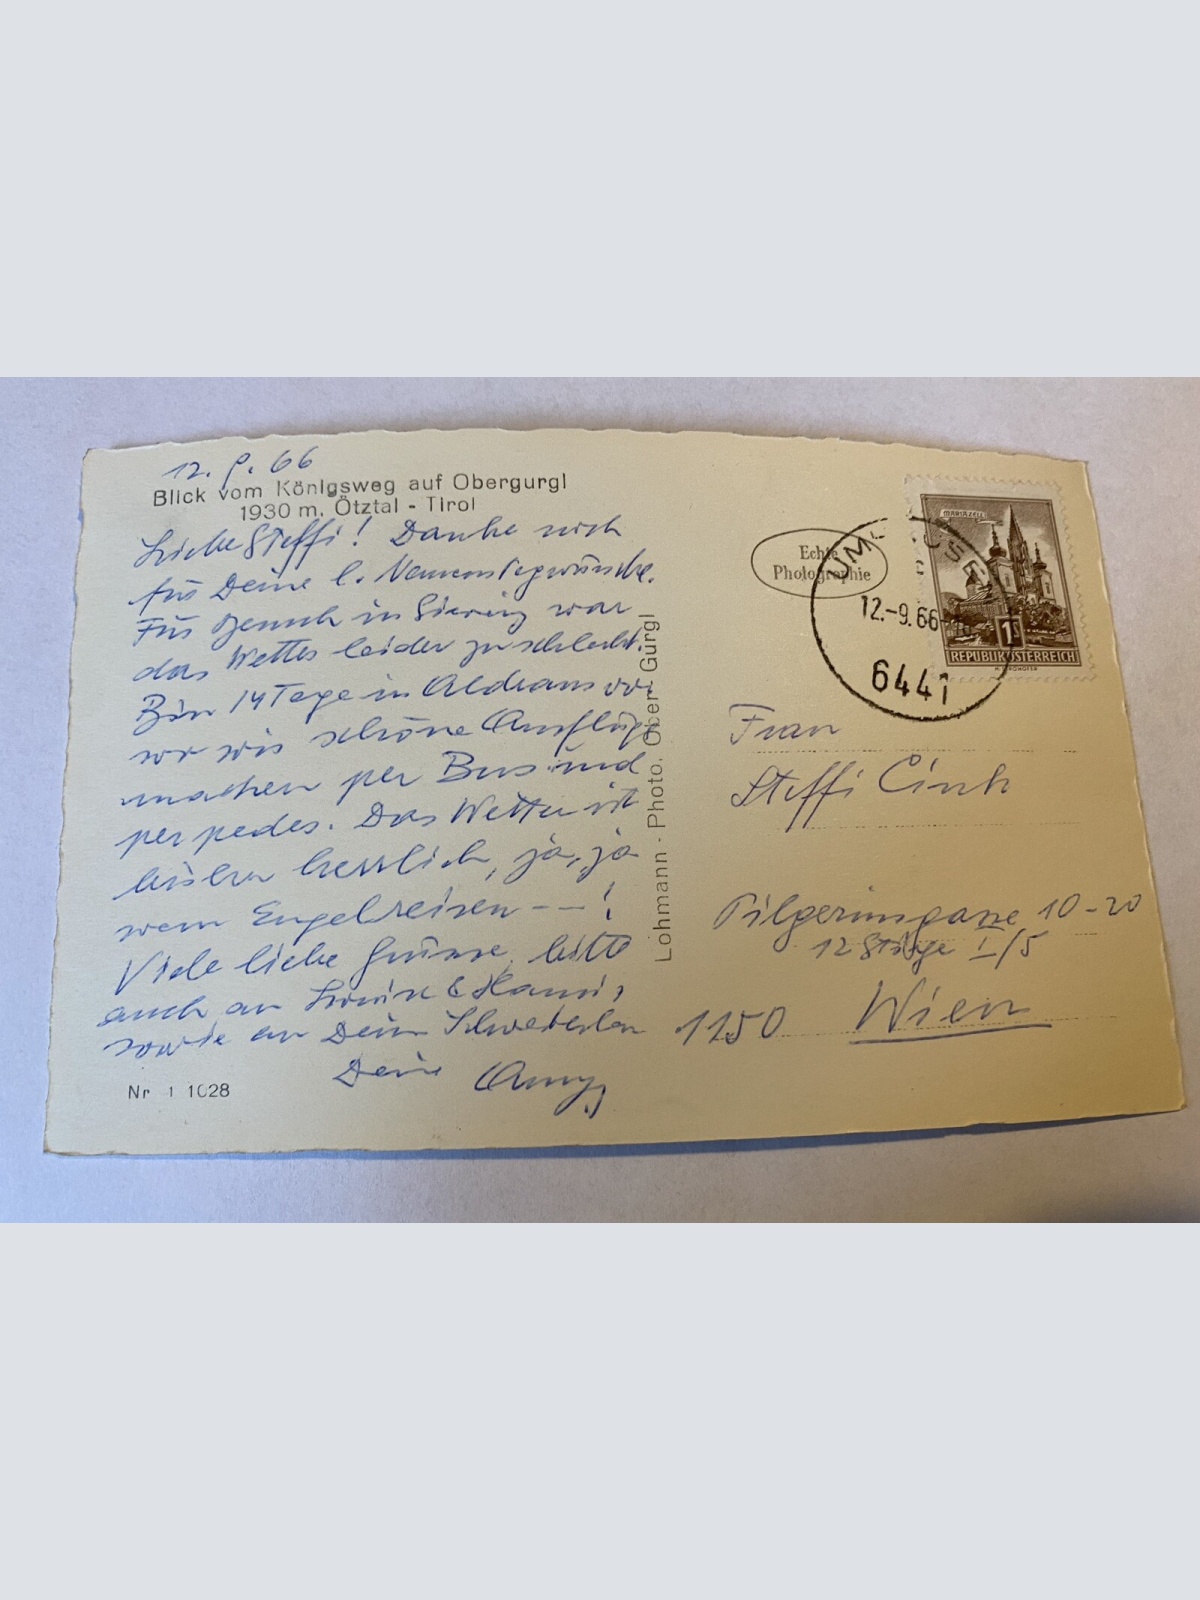 12. 9. 66
Blick vom Königsweg auf Obergurgl
1930 m, Ötztal - Tirol
Liebe Steffi! Danke noch
für Deine l. Namenstagwünsche.
Für Besuch in Sievering war
das Wetter leider zu schlecht.
Bin 14 Tage in Aldrans
wo wir schöne Ausflüge
machen per Bus und
per pedes. Das Wetter ist
bisher herrlich, ja, ja
wenn Engel reisen -- !
Viele liebe Grüsse, bitte
auch an Louise & Hansi,
sowie an Dein Schwesterlein
Deine Anny
Nr 1 1028
Lohmann - Photo. Ober - Gurgl
Echte
Photographie
MARIAZELL
1S
REPUBLIK ÖSTERREICH
UMHAUSEN
12.-9.66
6441
Frau
Steffi
Pilgerimgasse 10-20
12 Stiege I/5
1150 Wien